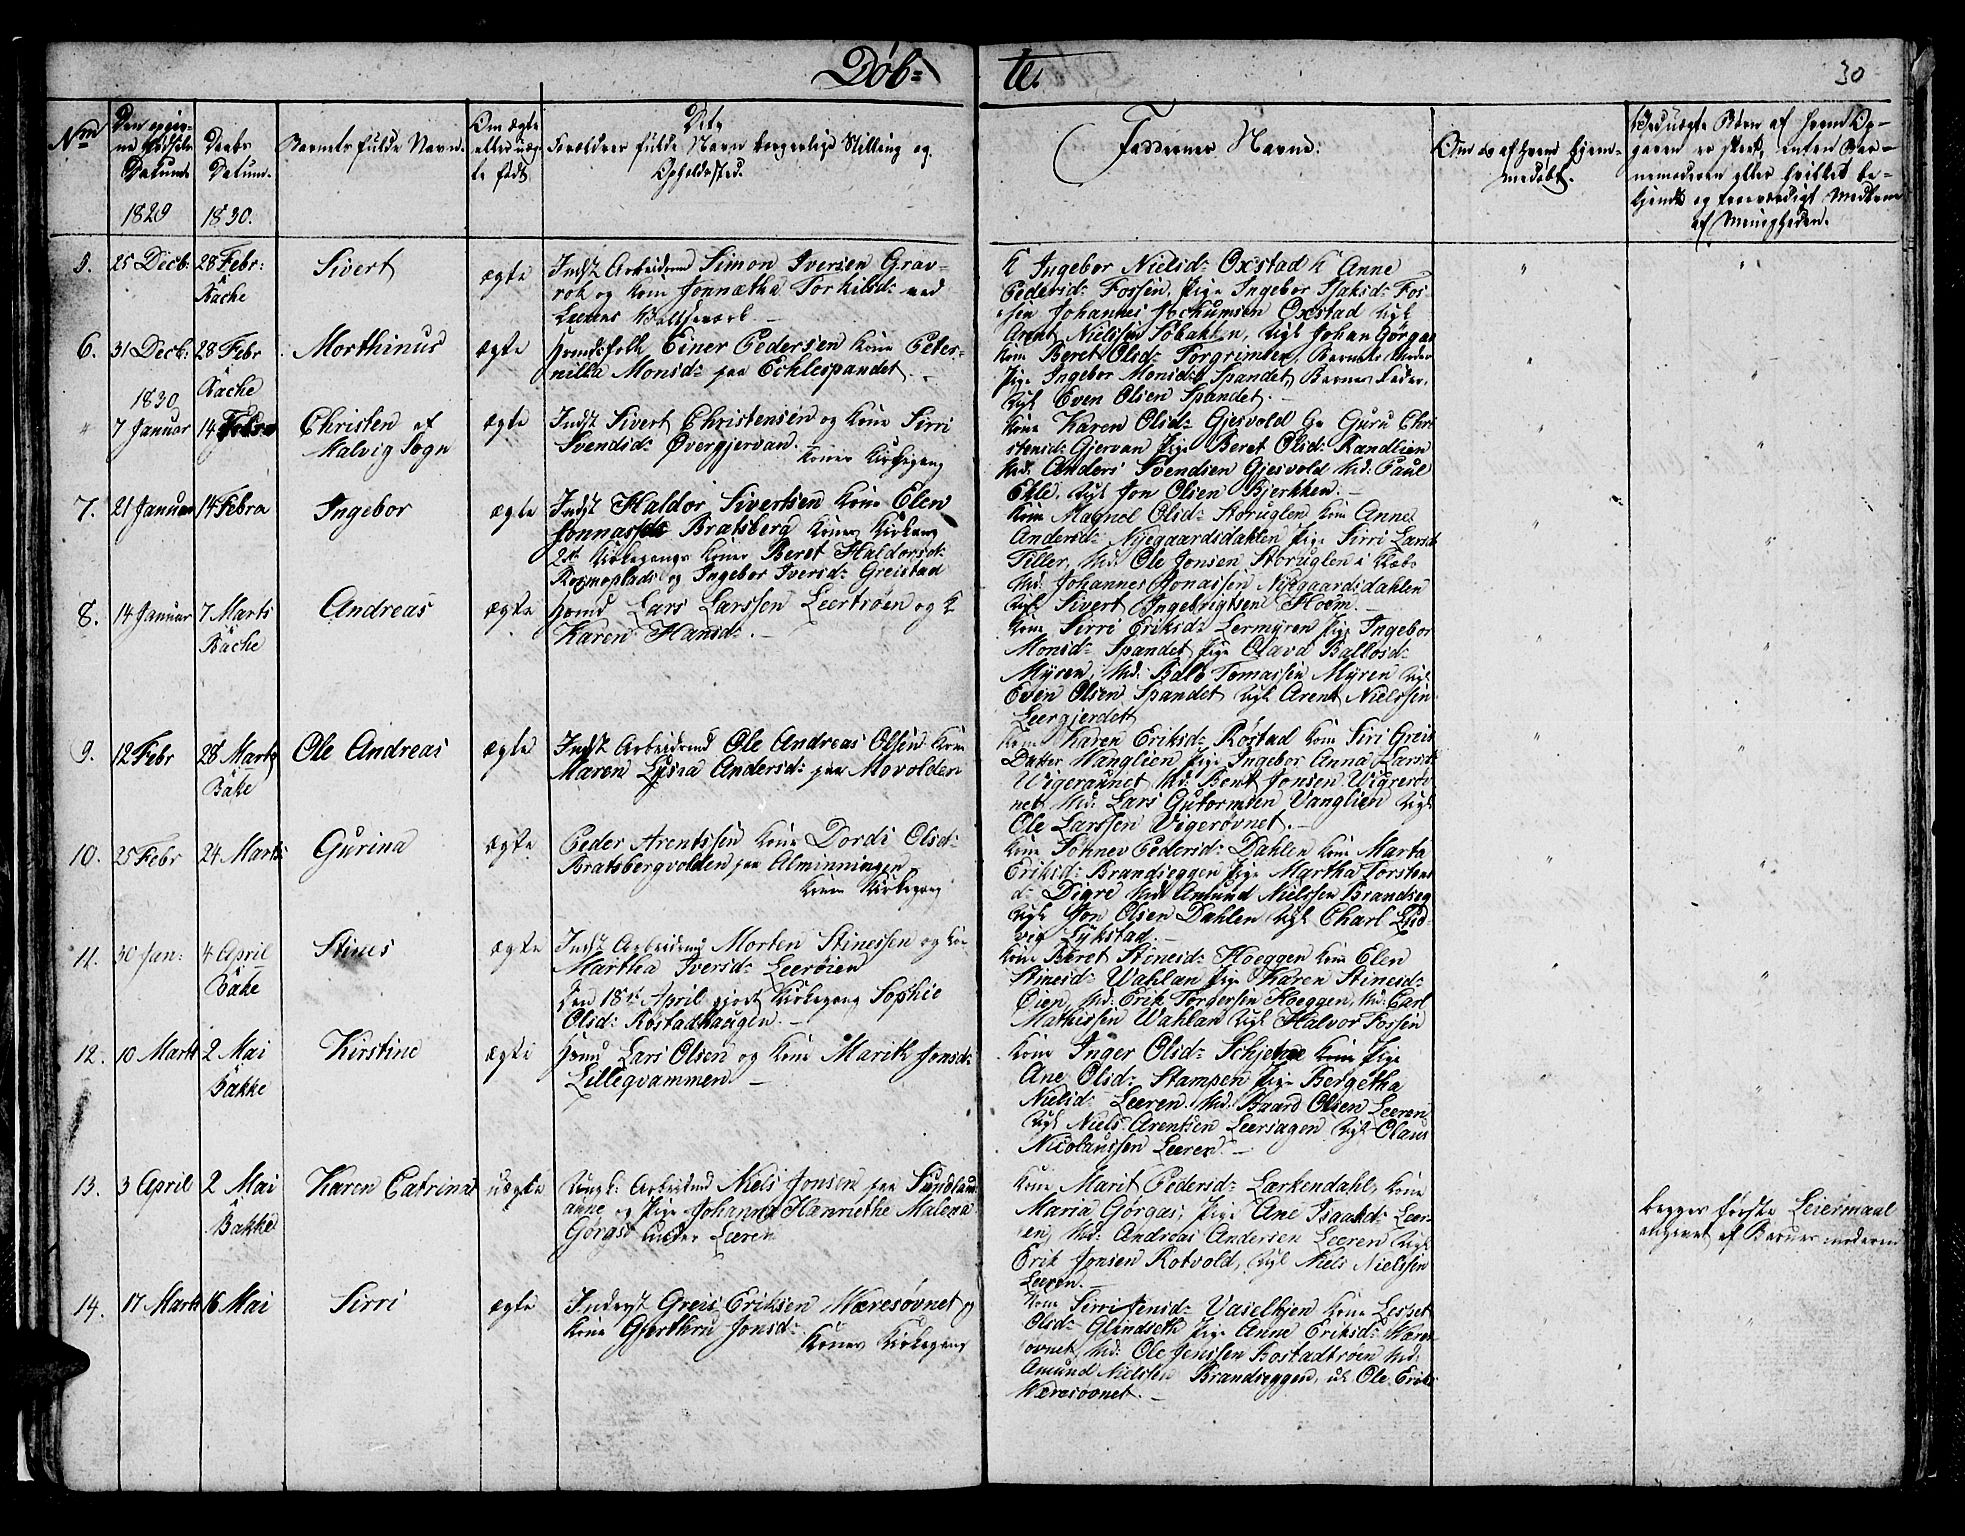 Døb= te.
30
No
Den opgiv-
ne Fødsels
Datum
1829
Daabs
Datum.
1830.
Barnets fulde Navn.
Om ægte
eller uæg-
te født.
Dets
Forældres fulde Navn borgerlige Stilling og
Opholdssted.
Faddernes Navne:
Om og af hvem hjem-
medøbt.
Ved uægte Børn af hvem Op-
gaven er skeet, enten Bar-
nemoderen eller hvilket be-
kjendt og troeværdigt Medlem
af Menigheden.
5. 25 Decb: 28 Febr: Bache
Sivert
ægte
Indst Arbeidsmd Simon Iversen Grav-
rok og Kone Jonnetha Torkilsd: ved
Leeren
K Ingebor Nielsd: Oxstad K Anne
Pedersd: Fossen, Pige Ingebor Isaksd: Fos-
sen Johannes Jochumsen Oxstad Ugk
Arent Nielssen Solbakken, Ugk Johan Gørgas
6. 31 Decb: 28 Febr Bache
Morthinus
ægte
Huusfolk Einer Pedersen Kone Peter-
nilla Monsd: paa Ecklespandet.
Kone Beret Olsd: Torgrimlen, Barnets Moder
Pige Ingebor Monsd: Spandet, Barnets Fader,
Ugk Even Olsen Spandet.
1830
" 7 Januar 14 Febra
Christen af
Malvig Sogn
ægte
Indst Sivert Christensen og Kone Sirri
Svendsd: Øvergjervan.
Kones Kirkegang
Kone Karen Olsd: Gjesvold Ge Guru Chri
stensd: Gjervan Pige Beret Olsd: Randlien
Md: Anders Svendsen Gjesvold Md: Paul
Ekle, Ugk Jon Olsen Bjerkken.
7. 21 Januar 14 Febra
Ingebor
ægte
Indst Haldor Sivertsen Kone Elen
Jonnasd: Bratsberg Kones Kirkegang
2de Kirkegangs Koner Beret Haldorsd:
Rosmoplads og Ingebor Iversd: Greistad
Kone Magnel Olsd: Storuglen Kone Anne
Andersd: Nyegaardsdahlen Pige Sirri Larsd:
Tiller, Md: Ole Jonsen Storuglen i Klæb:
Md: Johannes Jonassen Nyegaardsdahlen
Ugk Sivert Ingebrigtsen Hoem.
8. 14 Januar 7 Marts Bäche
Andreas
ægte
Huusmd Lars Larssen Leertrøen og K
Karen Hansd:
Kone Sirri Eriksd: Lermyren Pige Ingebor
Monsd: Spandet Pige Olava Ballosd:
Myren, Md: Balb Tomassen Myren Ugk
Even Olsen Spandet Ugk Arent Nielssen
Leergjerdet
9. 12 Febr 28 Marts Bäke
Ole Andreas
ægte
Indst Arbeidsmd Ole Andreas Olsen Kone
Maren Lysia Andersd: paa Movolden
Kone Karen Eriksd: Røstad Kone Siri Greis
Datter Wanglien Pige Ingebor Anna Larsd:
Wigeraunet Md: Bent Jonsen Wigerøv-
net, Md: Lars Gutormsen Vanglien Ugk
Ole Larssen Vigerøvnet.
10. 25 Febr 24 Marts
Gurina
ægte
Peder Arentssen Kone Dordi Olsd:
Bratsbergvolden paa Alminningen
Kones Kirkegang
Kone Sohnev Pedersd: Dahlen Kone Marta
Eriksd: Brandseggen Pige Martha Torstens
d: Digre Md: Amund Nielssen Brandseg
Ugk Jon Olsen Dahlen Ugk Charl Lud-
vig Lykstad.
11. 30 Jan: 4 April Bäke
Stines
ægte
Indst Arbeidsmd Morten Stinessen og Ko-
Martha Iversd: Leerøien
Den 18de April gjort Kirkegang Sophie
Olsd: Rostadhaugen.
Kone Beret Stinesd: Hoeggen Kone Elen
Stinesd: Wahlan Pige Karen Stinesd:
Øien, Md: Erik Torgersen Hoeggen, Md: Carl
Mathissen Wahlan Ugk Halvor Fossen
12. 10 Marts 2 Mai Bakke
Kirstine
ægte
Huusmd Lars Olsen og Kone Marith Jonsd:
Lillegvammen.
Kone Inger Olsd: Schjetne Kone Pige
Ane Olsd: Stampen Pige Bergetha
Nielsd: Leeren. Md: Baard Olsen Leeren,
Ugk Niels Arentsen Leersagen, Ugk Olaus
Nicolaussen Leeren.
13. 3 April 2 Mai Bakke
Karen Catrina
uægte
Ungk: Arbeidsmd Niels Jonsen paa Sundlau
anne og Pige Johanna Hænriethe Malena
Gørgas under Leeren
Kone Marit Pedersd: Lærkendahl, Kone
Maria Gørgas, Pige Ane Isaaksd: Leer-
en, Md: Andreas Andersen Leeren Ugk
Erik Jonsen Rotvold, Ugk Niels Nielssen
Leeren.
begges første Leiermaal
angivet af Barnemoderen
14. 17 Marts 16 Mai
Sirri
ægte
Inderst Greis Eriksen Wæresøvnet og
Kone Gjerthru Jonsd:
Kones Kirkegang
Kone Sirri Jensd: Vaselhjen Kone Lesset
Olsd: Glindseth Pige Anne Eriksd: Wæres
øvnet Md: Ole Jenssen Bostadtrøen Md:
Amund Nielssen Brandseggen, uk Ole Eriks
Wæresøvnet.